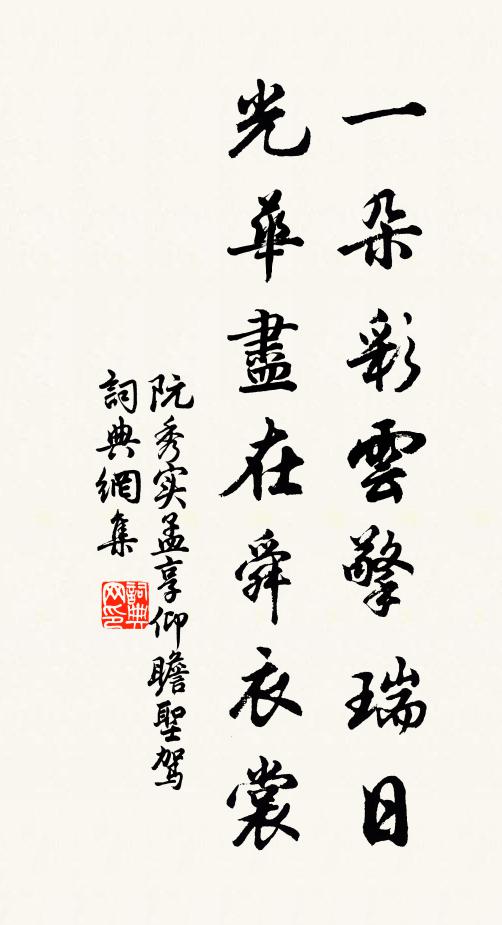 一朵彩雲擎瑞日
光華盡在舜衣裳
阮秀实孟享仰瞻聖駕
詞典網集
詞典網印